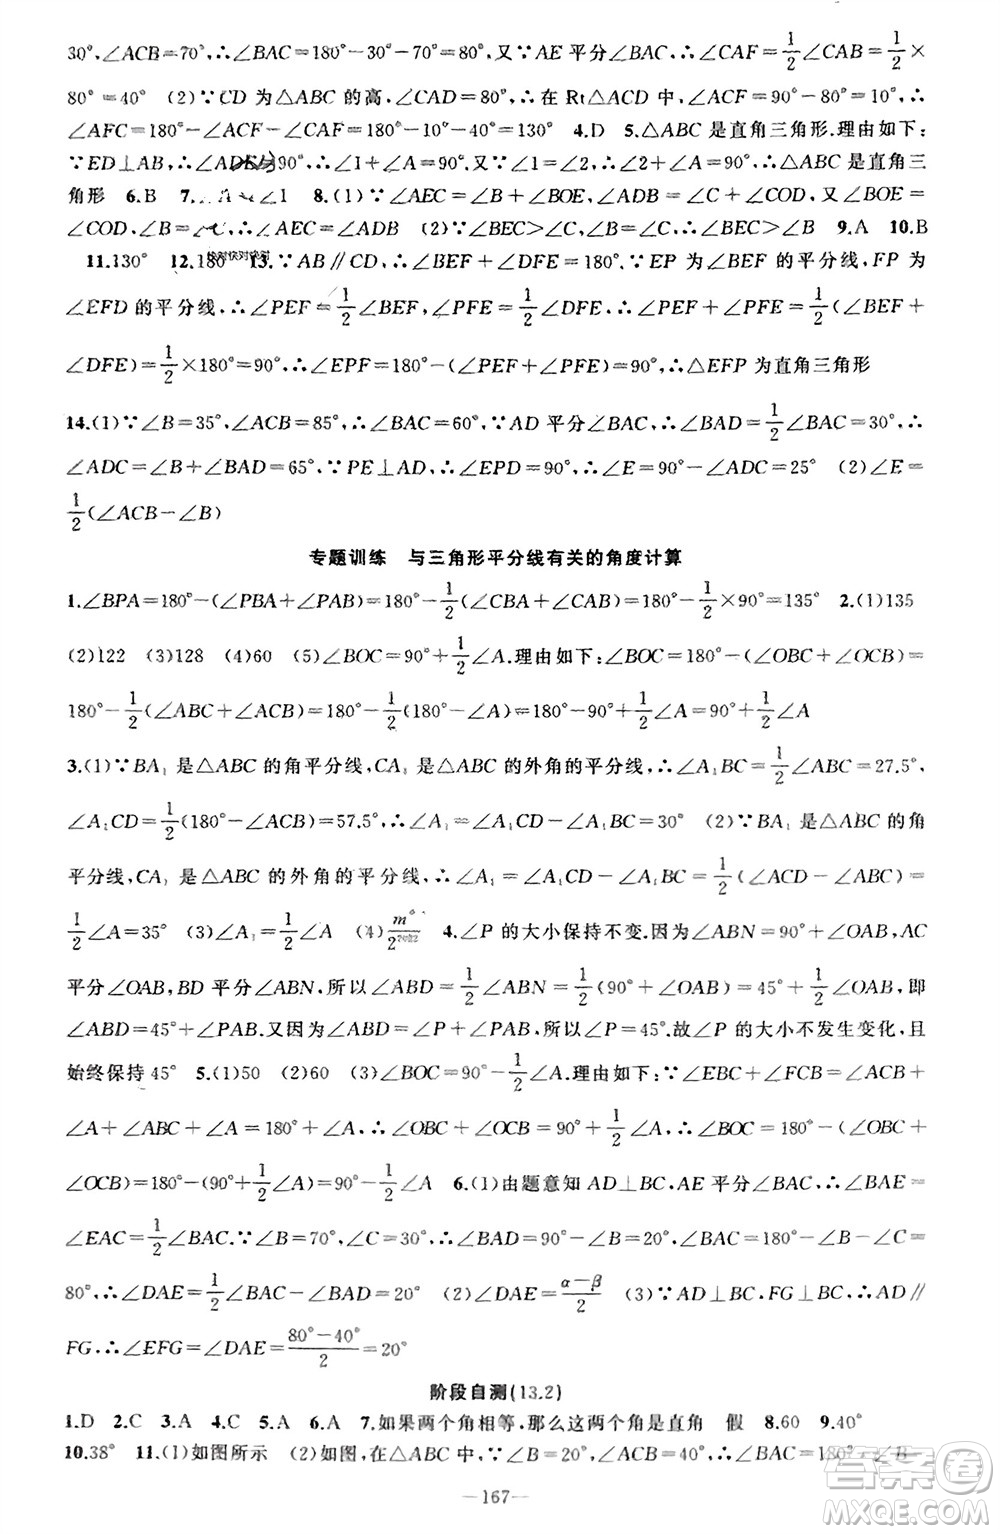 30°,∠ACB=70°,∴∠BAC=180°-30°-70°=80°,又∵AE平分∠BAC,∴∠CAF=1/2∠CAB=1/2×
80°=40° (2)∵CD为△ABC的高,∠CAD=80°,∴在Rt△ACD中,∠ACF=90°-80°=10°,∴
∠AFC=180°-∠ACF-∠CAF=180°-10°-40°=130° 4.D 5.△ABC是直角三角形.理由如下:
∵ED⊥AB,∴∠ADE=90°,∴∠1+∠A=90°,又∵∠1=∠2,∴∠2+∠A=90°,∴△ABC是直角三
角形 6.B 7. ∠1 8.(1)∵∠AEC=∠B+∠BOE,∠ADB=∠C+∠COD,又∠BOE=
∠COD,∠B=∠C,∴∠AEC=∠ADB (2)∵∠BEC>∠CDB,∠CDB>∠B,∴∠BEC>∠B 9.A 10.B
11.130° 12.180° 13.∵AB∥CD,∴∠BEF+∠DFE=180°.∵EP为∠BEF的平分线,FP为
∠EFD的平分线,∴∠PEF=1/2∠BEF,∠PFE=1/2∠DFE,∴∠PEF+∠PFE=1/2(∠BEF+
∠DFE)=1/2×180°=90°,∴∠EPF=180°-(∠PEF+∠PFE)=90°,∴△EFP为直角三角形
14.(1)∵∠B=35°,∠ACB=85°,∴∠BAC=60°,∵AD平分∠BAC,∴∠BAD=1/2∠BAC=30°,∴
∠ADC=∠B+∠BAD=65°.∵PE⊥AD,∴∠EPD=90°,∴∠E=90°-∠ADC=25° (2)∠E=
1/2(∠ACB-∠B)
专题训练 与三角形平分线有关的角度计算
1.∠BPA=180°-(∠PBA+∠PAB)=180°-1/2(∠CBA+∠CAB)=180°-1/2×90°=135° 2.(1)135
(2)122 (3)128 (4)60 (5)∠BOC=90°+1/2∠A.理由如下:∠BOC=180°-(∠OBC+∠OCB)=
180°-1/2(∠ABC+∠ACB)=180°-1/2(180°-∠A)=180°-90°+1/2∠A=90°+1/2∠A
3.(1)∵BA₁是△ABC的角平分线,CA₁是△ABC的外角的平分线,∴∠A₁BC=1/2∠ABC=27.5°,
∠A₁CD=1/2(180°-∠ACB)=57.5°,∴∠A₁=∠A₁CD-∠A₁BC=30° (2)∵BA₁是△ABC的角
平分线,CA₁是△ABC的外角的平分线,∴∠A₁=∠A₁CD-∠A₁BC=1/2(∠ACD-∠ABC)=
1/2∠A=35° (3)∠A₁=1/2∠A (4)m°/2²⁰²² 4.∠P的大小保持不变.因为∠ABN=90°+∠OAB,AC
平分∠OAB,BD平分∠ABN,所以∠ABD=1/2∠ABN=1/2(90°+∠OAB)=45°+1/2∠OAB,即
∠ABD=45°+∠PAB.又因为∠ABD=∠P+∠PAB,所以∠P=45°.故∠P的大小不发生变化,且
始终保持45° 5.(1)50 (2)60 (3)∠BOC=90°-1/2∠A.理由如下:∵∠EBC+∠FCB=∠ACB+
∠A+∠ABC+∠A=180°+∠A,∴∠OBC+∠OCB=90°+1/2∠A,∴∠BOC=180°-(∠OBC+
∠OCB)=180°-(90°+1/2∠A)=90°-1/2∠A 6.(1)由题意知AD⊥BC,AE平分∠BAC,∴∠BAE=
∠EAC=1/2∠BAC.∵∠B=70°,∠C=30°,∴∠BAD=90°-∠B=20°,∠BAC=180°-∠B-∠C=
80°,∴∠DAE=1/2∠BAC-∠BAD=20° (2)∠DAE=(α-β)/2 (3)∵AD⊥BC,FG⊥BC,∴AD∥
FG,∴∠EFG=∠DAE=(80°-40°)/2=20°
阶段自测(13.2)
1.D 2.C 3.A 4.C 5.A 6.A 7.如果两个角相等,那么这两个角是直角 假 8.60 9.40°
10.38° 11.(1)如图所示 (2)如图,在△ABC中,∵∠B=20°,∠ACB=40°,∴∠BAC=180°-∠B-
—167—
答案圈
MXQE.COM